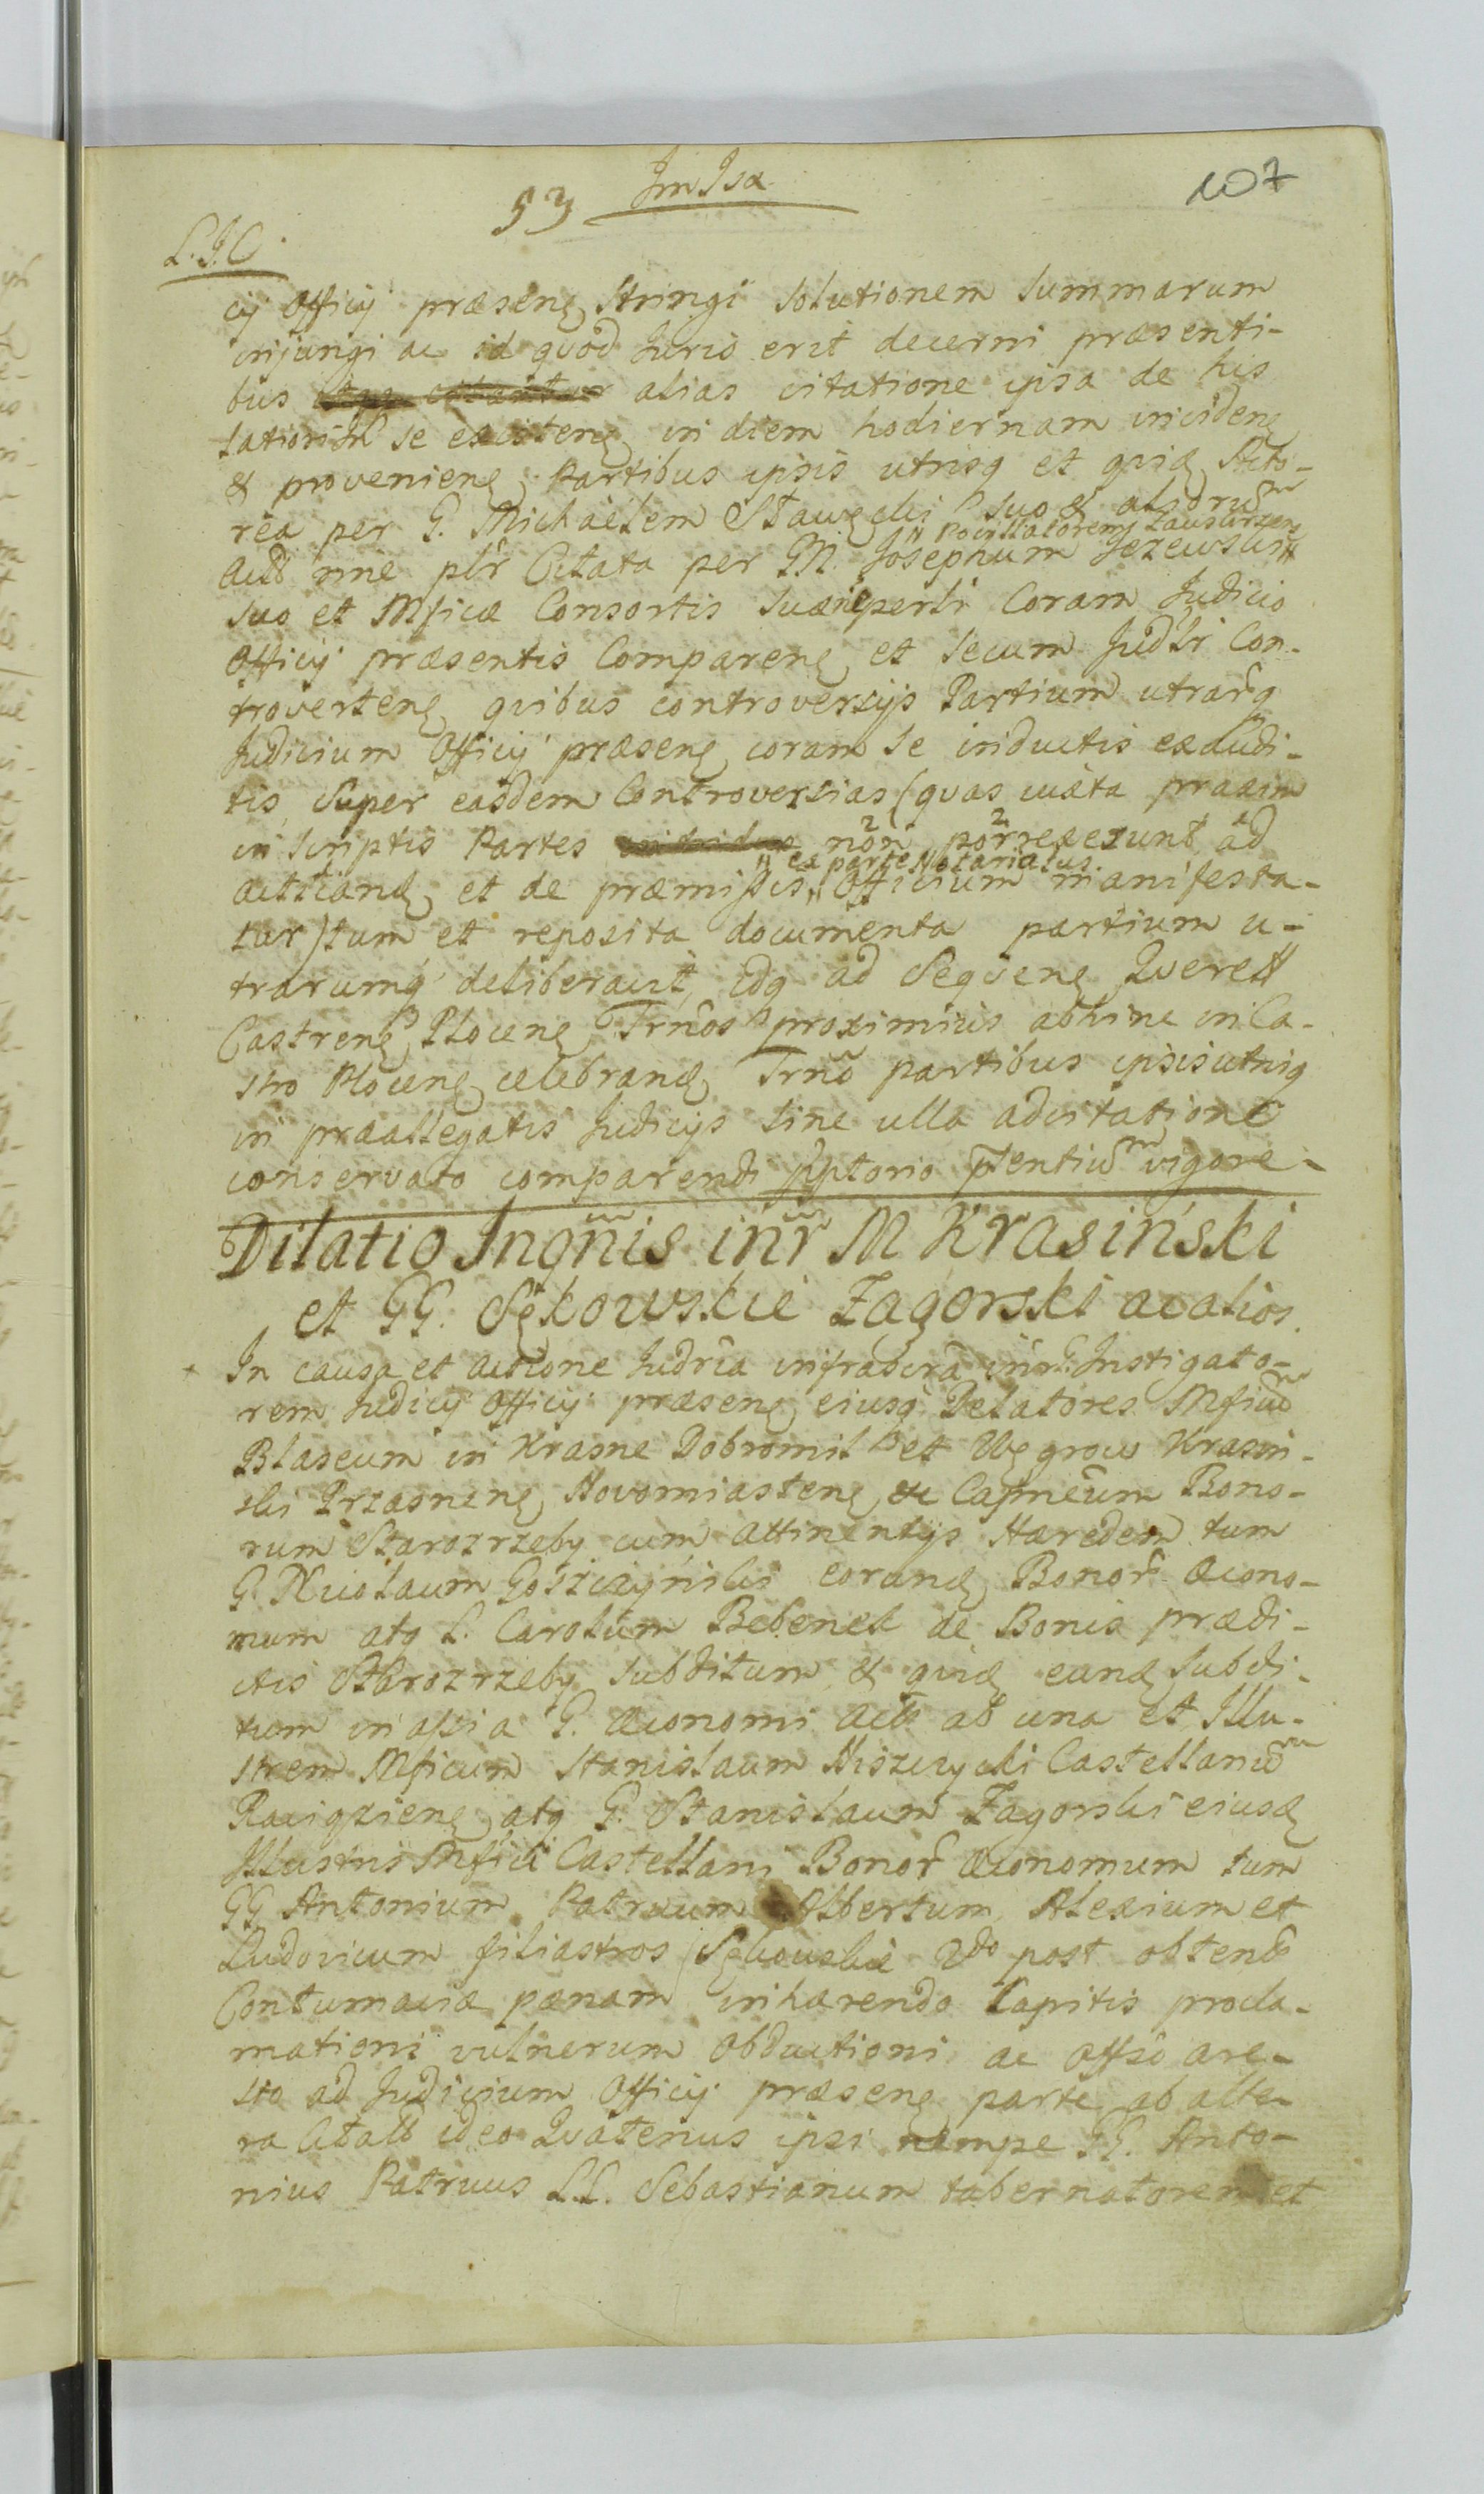 53 Im Isa 107
L.I.C
cij Officij præsenꝫ Stringi Solutionem Summarum
injungi ac id quod Juris erit decerni præsenti-
bus alias citatione ipsa de his
se existenꝫ in diem hodiernam incidenꝫ
& provenienꝫ Partibus ipsis utrisq et quidꝫ Acto-
rea per G. Michaëlem Stawęcki suo &
" Pocillatorem
Citata per GM. Josephum Jezewski "
suo et Mficæ Consortis suæ Coram Judicio
Officij præsentis Comparenꝫ et secum Judlr Con-
trovertenꝫ quibus controversijs Partium utrarq
Judicium Officij præsenꝫ coram se inductis exaudi-
tis, Super easdem Controversias (quas juxta praxim
in Scriptis Partes non porrexerunt ad
" ex parte Notariatus
acticandꝫ et de præmissis " Officium manifesta-
tur) tum et reposita documenta partium u-
trarumq deliberavit, idq ad Sequenꝫ Querell
Castrenꝫ Plocenꝫ Trnos proximius abhinc in Ca-
stro Plocenꝫ celebrandꝫ Trno partibus ipsis utrisq
in præallegatis Judicijs sine ulla adcitatione
conservato comparendi pptorio pntium vigore-
Dilatio Inqnis inr M Krasiński
et GG. Sękowskie Zagorski ac alios.
+ In causa et actione Judria infrascra inr G. Instigato-
rem Judicij Officij præsenꝫ eiusq Delatores Mficum
Blaseum in Krasne Dobromil et Węgrow Krasin-
ski Przasnenꝫ Novomiastenꝫ &c Capneum Bono-
rum Starozrzeby cum attinentijs Hæredem tum
G. Nicolaum Goszczyński eorundꝫ Bonor œcono-
mum atq L. Carolum Bebenek de Bonis prædi-
ctis Starozrzeby subditum & quidꝫ eundꝫ subdi-
tum in assia G. œconomi act ab una et Illu-
strem Mficum Stanislaum Niszczycki Castellanum
Raciązienꝫ atq G. Stanislaum Zagorski eiusdꝫ
Illustris Mfici Castellani Bonor œconomum tum
GG Antonium Patruum Albertum Alexium et
Ludovicum filiastros Sękowskie 2do post obtent
Contumaciæ pænam inhærendo Capitis procla-
mationi vulnerum obductioni ac offso are-
sto ad Judicium Officij præsenꝫ parte ab alte-
ra Citatt ideo Quatenus ipsi nempe GG. Anto-
nius Patruus L.L. Sebastianum tabernatorem et